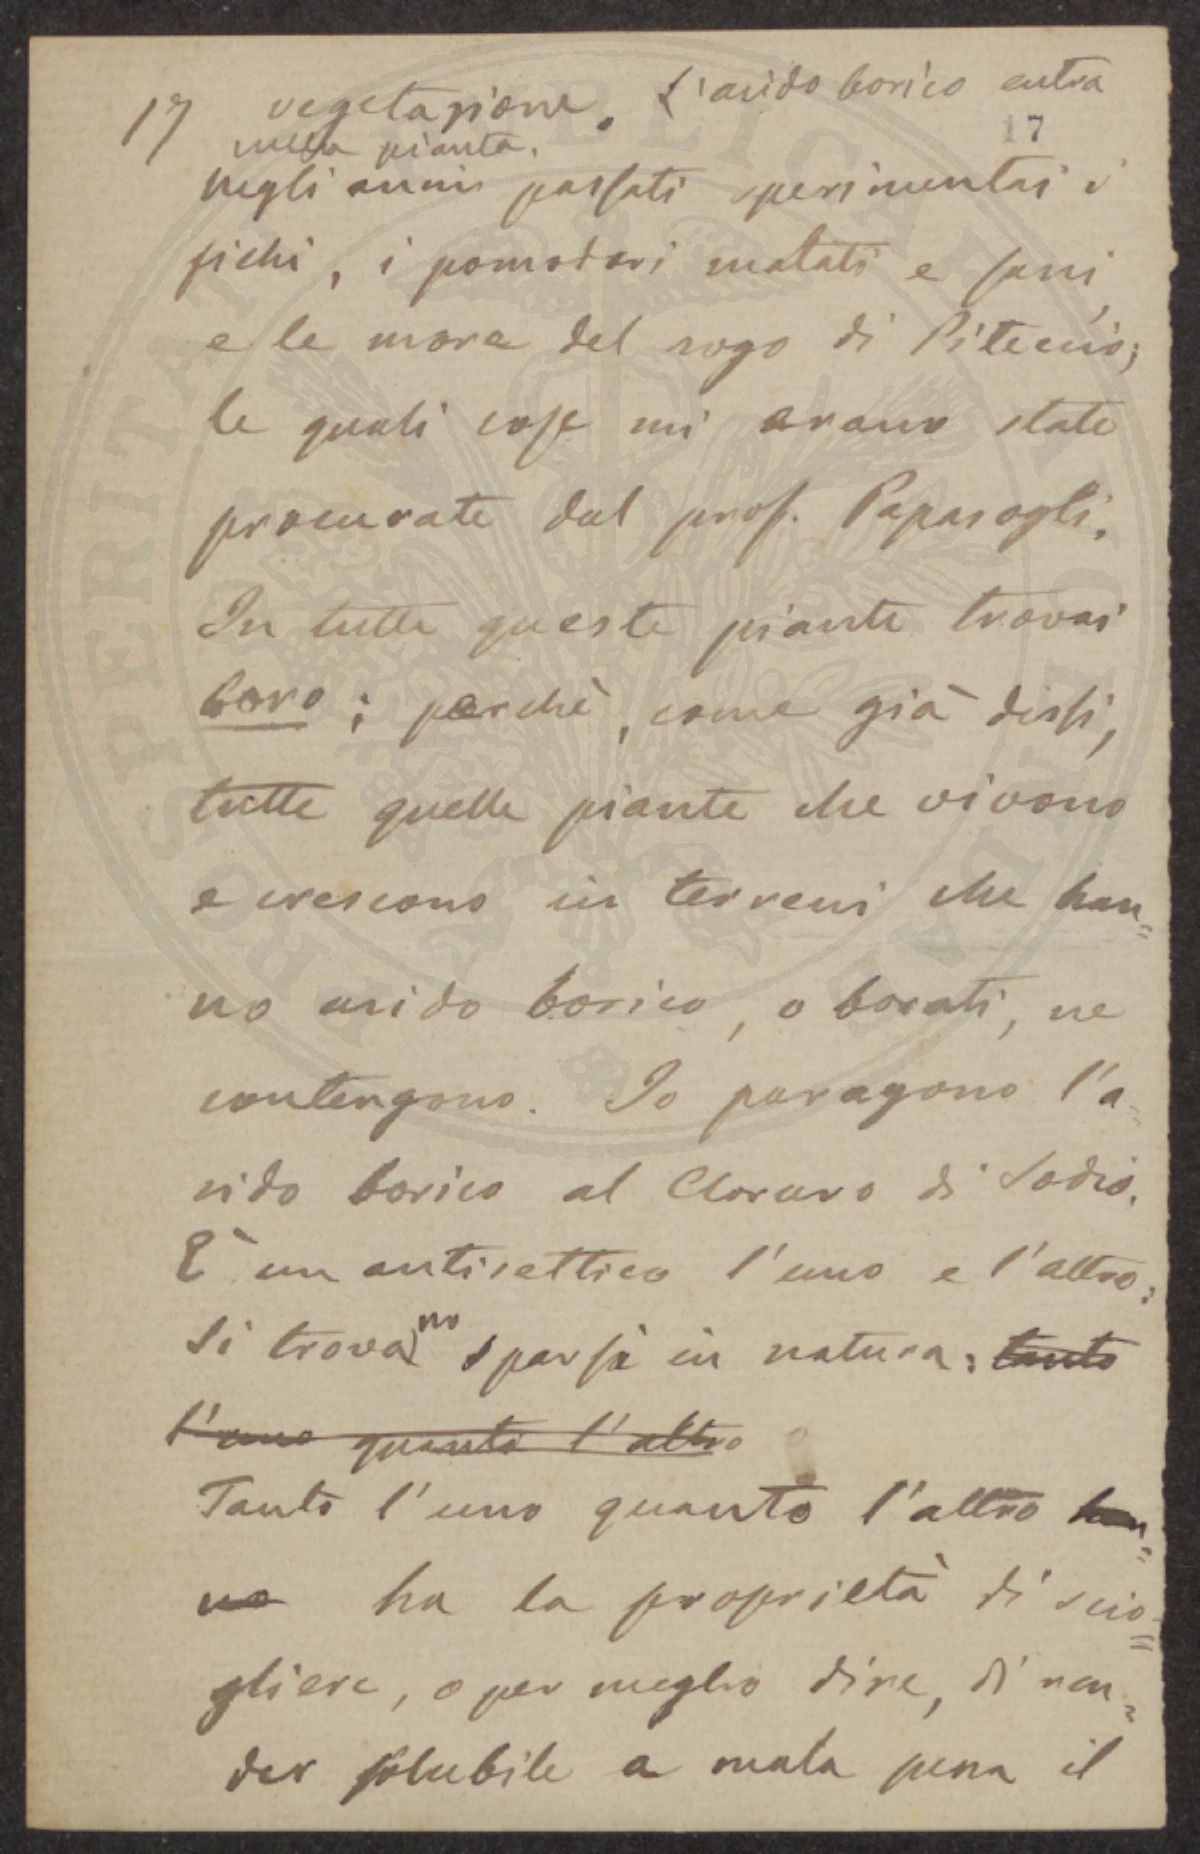 17 vegetazione. L'acido borico entra
17
nella pianta.
negli anni passati sperimentai i
fichi, i pomodori malati e sani,
e le more del rogo di Piteccio;
le quali cose mi erano state
procurate dal prof. Papasogli.
In tutte queste piante trovai
boro; perchè, come già dissi,
tutte quelle piante che vivono
e crescono in terreni che han=
no acido borico, o borati, ne
contengono. Io paragono l'a=
cido borico al Cloruro di Sodio.
È un antisettico l'uno e l'altro;
si trovano sparsi in natura: tanto
l'uno quanto l'altro
Tanto l'uno quanto l'altro han=
no ha la proprietà di scio=
gliere, o per meglio dire, di ren=
der solubile a mala pena il
PROSPERITAS PUBLICA